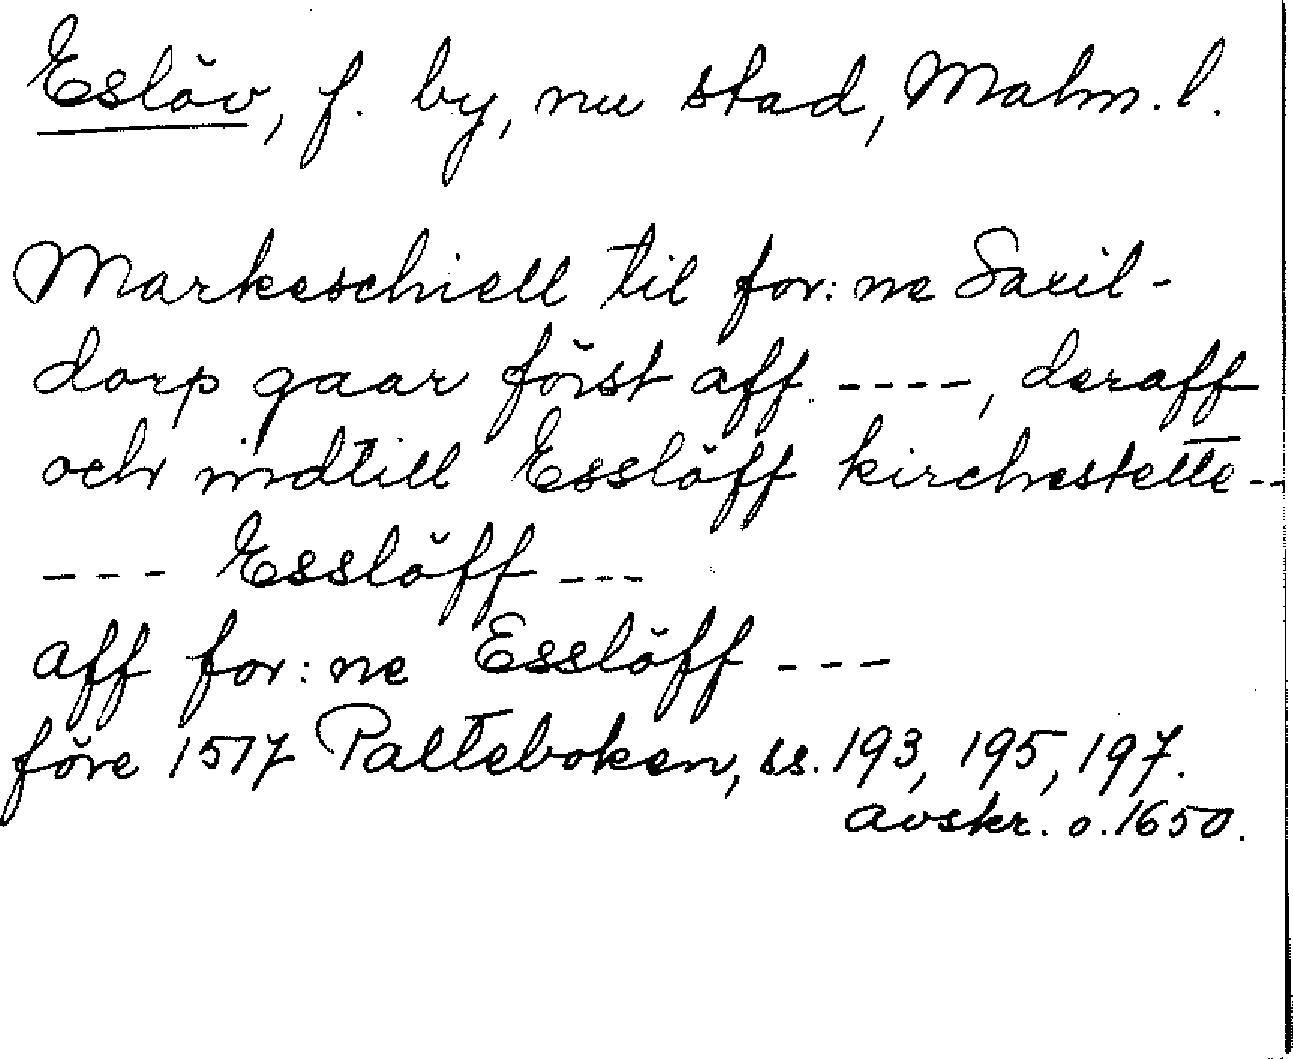 Eslöv, f. by, nu stad, Malm. l.
Markeschiell til for: ne Saxil-
dorp gaar först aff ----, deraff
och indtill Esslöff kirchestette--
--- Esslöff ---
aff for: ne Esslöff ---
före 1517 Palteboken, ss. 193, 195, 197.
avskr. o. 1650.